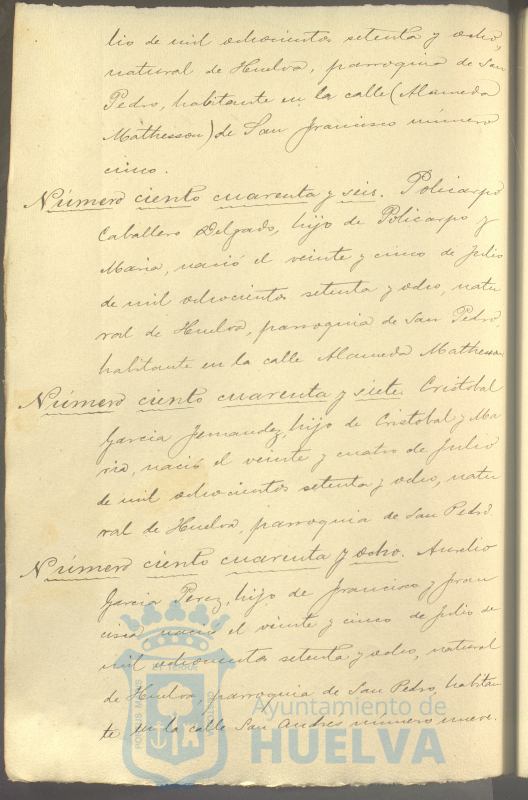 lio de mil ochocientos setenta y ocho,
natural de Huelva, parroquia de San
Pedro, habitante en la calle (Alameda
Mathesson) de San Francisco número
cinco.
Número ciento cuarenta y seis. Policarpo
Caballero Delgado, hijo de Policarpo y
Maria, nació el veinte y cinco de Julio
de mil ochocientos setenta y ocho, natu
ral de Huelva, parroquia de San Pedro,
habitante en la calle Alameda Mathesson
Número ciento cuarenta y siete. Cristobal
Garcia Fernandez, hijo de Cristobal y Ma
ria, nació el veinte y cuatro de Julio
de mil ochocientos setenta y ocho, natu
ral de Huelva, parroquia de San Pedro
Número ciento cuarenta y ocho. Aurelio
Garcia Perez, hijo de Francisco y Fran
cisca nació el veinte y cinco de Julio de
mil ochocientos setenta y ocho, natural
de Huelva, parroquia de San Pedro, habitan
te en la calle San Andres número nueve.
Ayuntamiento de
HUELVA